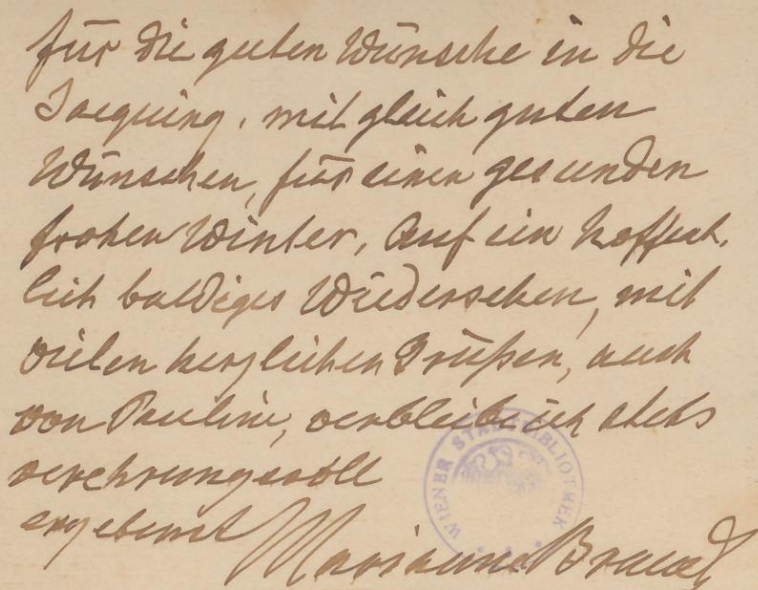 für die guten Wünsche in die
Jacquing, mit gleich guten
Wünschen, für einen gesunden
frohen Winter, Auf ein hoffent,
lich baldiges Wiedersehen, mit
vielen herzlichen Grüßen, auch
von Pauline, verbleibe ich stets
verehrungsvoll
ergebenst
Marianne Brandt
WIENER STADTBIBLIOTHEK